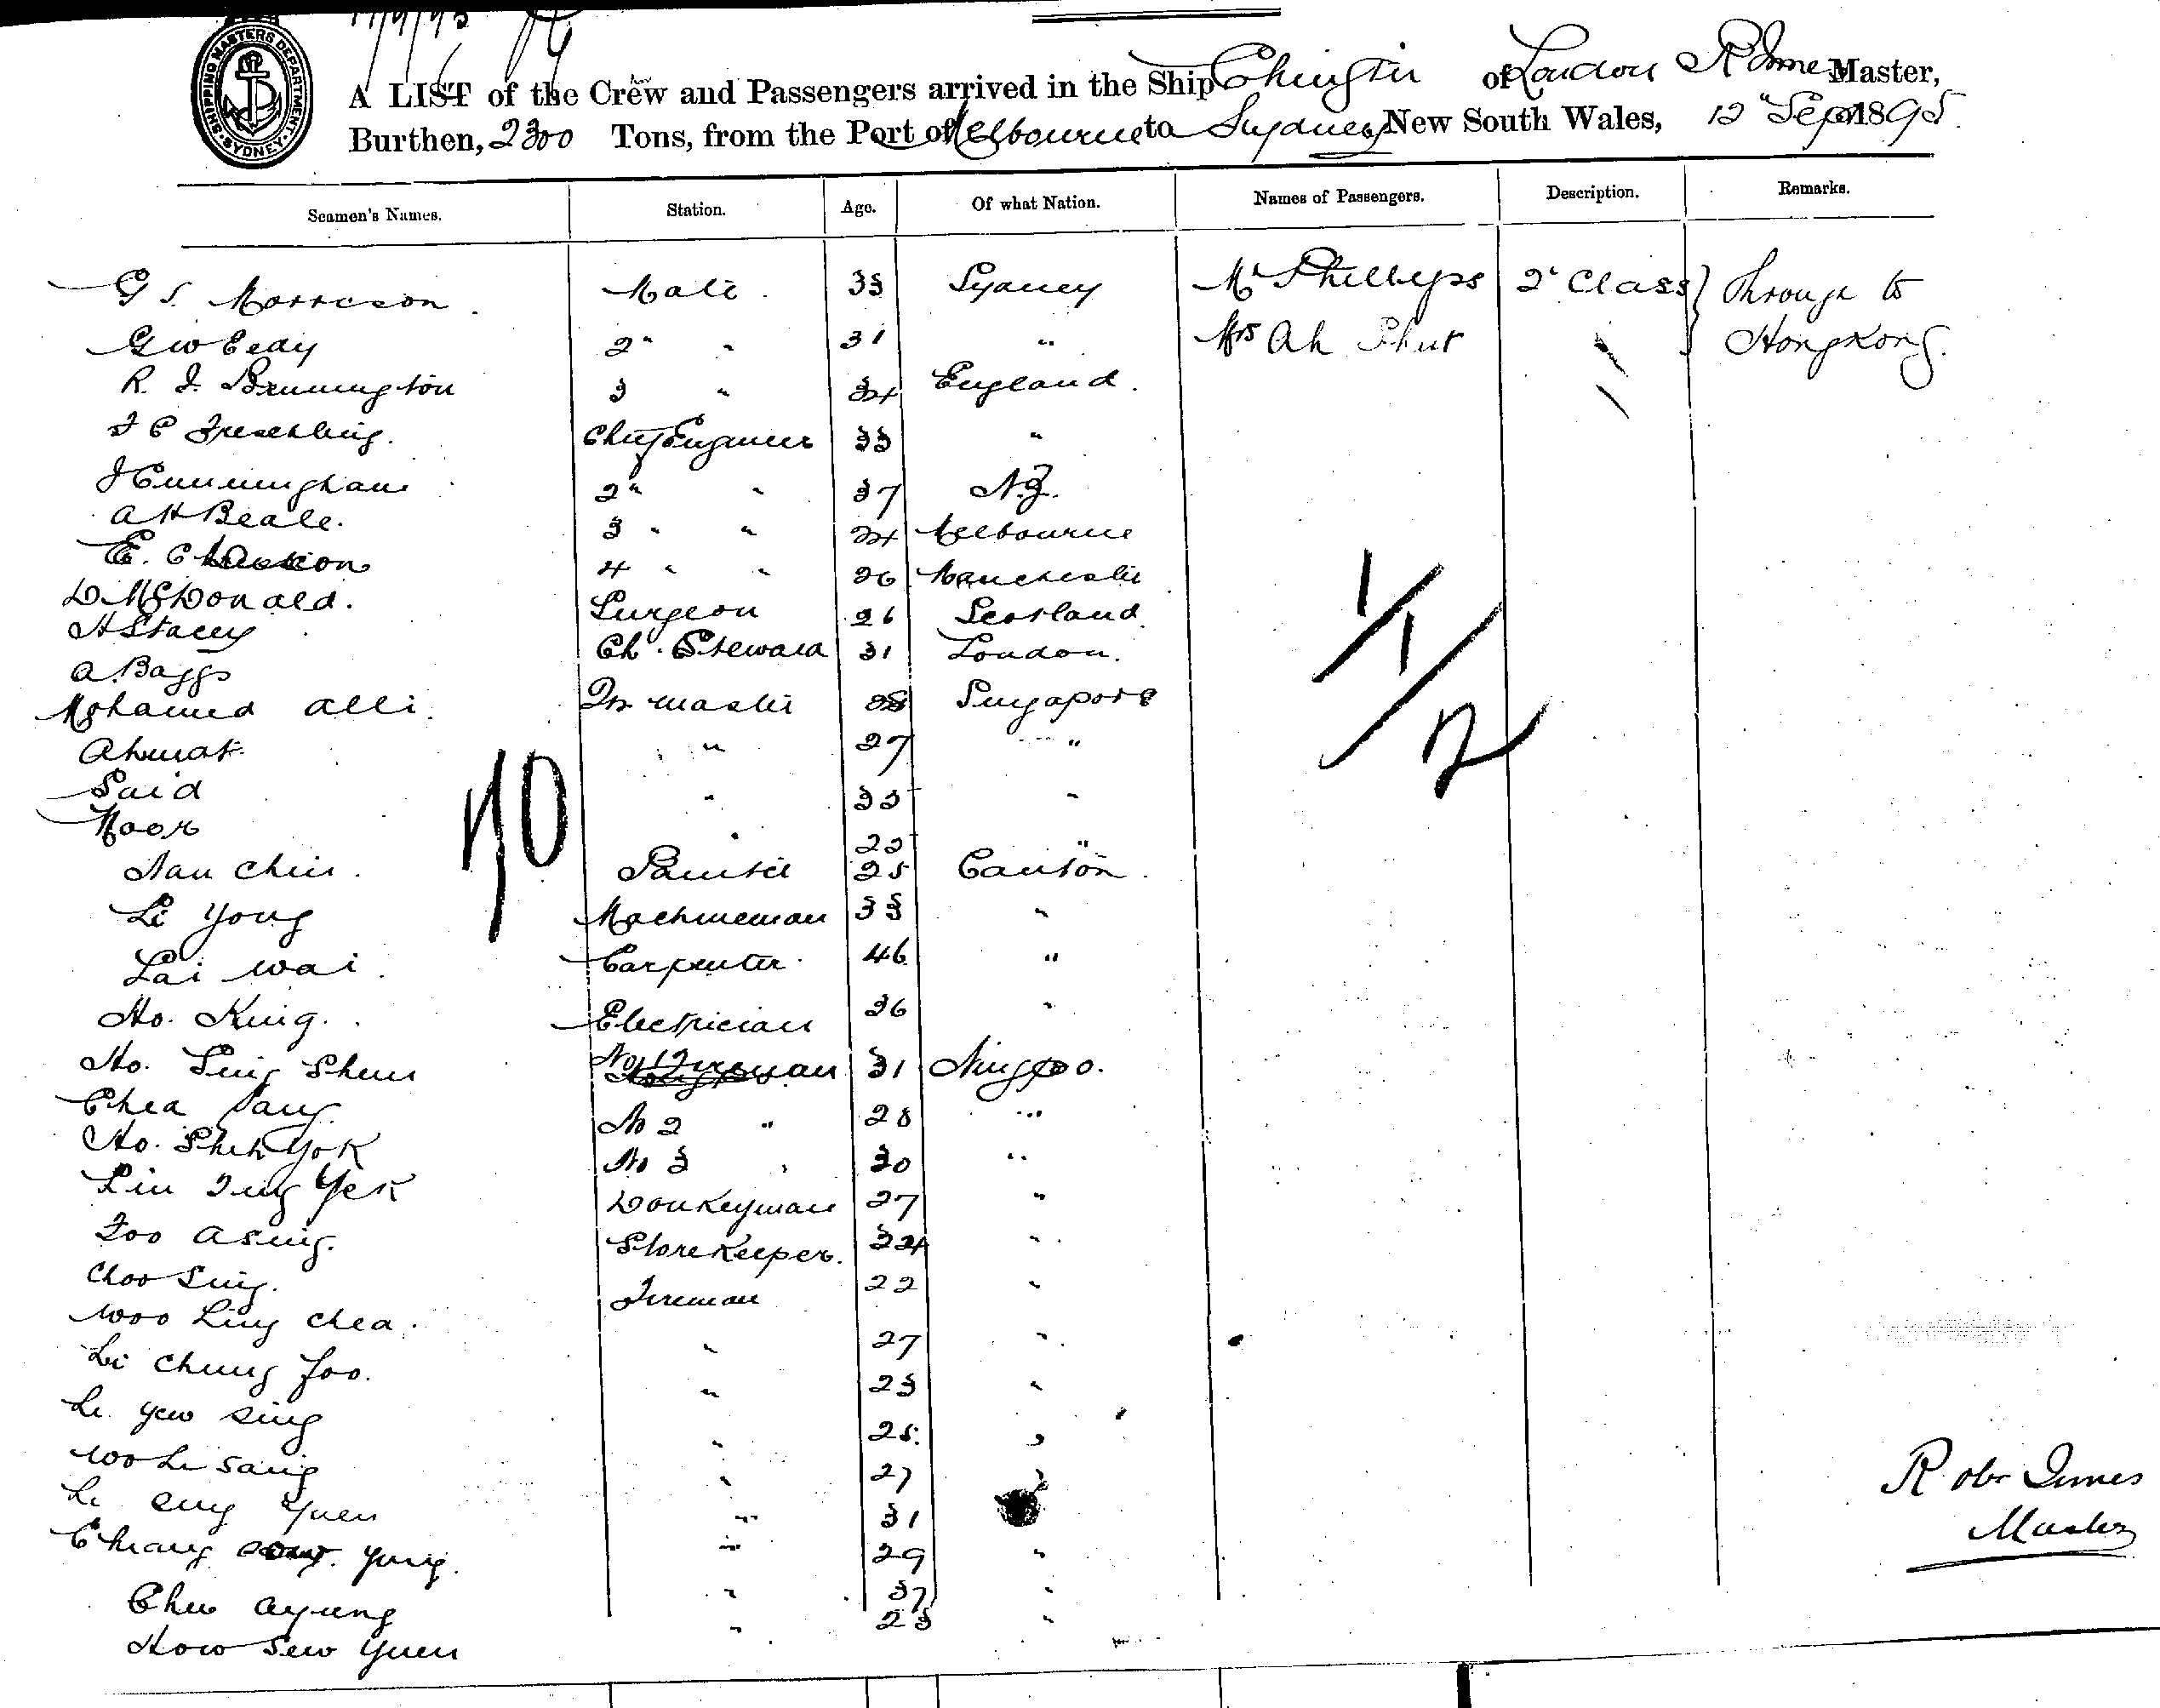 SHIPPING MASTERS DEPARTMENT · SYDNEY ·
A LIST of the Crew and Passengers arrived in the Ship Chingtu of London R Innes Master,
Burthen, 2300 Tons, from the Port of Melbourne to Sydney, New South Wales, 12" Sep 1895.
Seamen's Names. Station. Age. Of what Nation. Names of Passengers. Description. Remarks.
G S. Morrison. Mate. 33 Sydney Mr Phillips 2' Class } Through to
G W Eedy 2" " 31 " Mrs Ah Shut " Hongkong.
R. J. Brunnington 3 " 24 England.
Chief Engineer 33 "
J Cunningham 2" " 37 N.Z.
A H Beale. 3 " " 24 Melbourne
E. 4 " " 26 Manchester
D. McDonald. Surgeon 26 Scotland.
H Stacey Ch. Steward 31 London.
A. Baggs
Mohamed Alli. Qr master 28 Singapore
Ahmat. " 27 "
Said " 33 "
Noor " 23 "
Nan Chin. Painter 25 Canton.
Li Yong Machineman 33 "
Lai Wai. Carpenter. 46 "
Ho. King. Electrician 36 "
Ho. Sing Shun No 1 Fireman 31 Ningpo.
Chea Pang No 2 " 28 "
Ho. Sheh Yok No 3 " 30 "
Lin Ing Yek Donkeyman 27 "
Foo Asing. Storekeeper. 34 "
Choo Sing. Fireman 22 "
Woo Ling Chea. " 27 "
Li Chung Foo. " 23 "
Li Yew Sing " 25. "
Woo Li Sang " 27 "
Li Eng Yuen " 31 "
Chiang Yung. " 29 "
Chu Ayung " 37 "
How Sew Yuen " 23 "
70
1/1/2
Robt Innes
Master